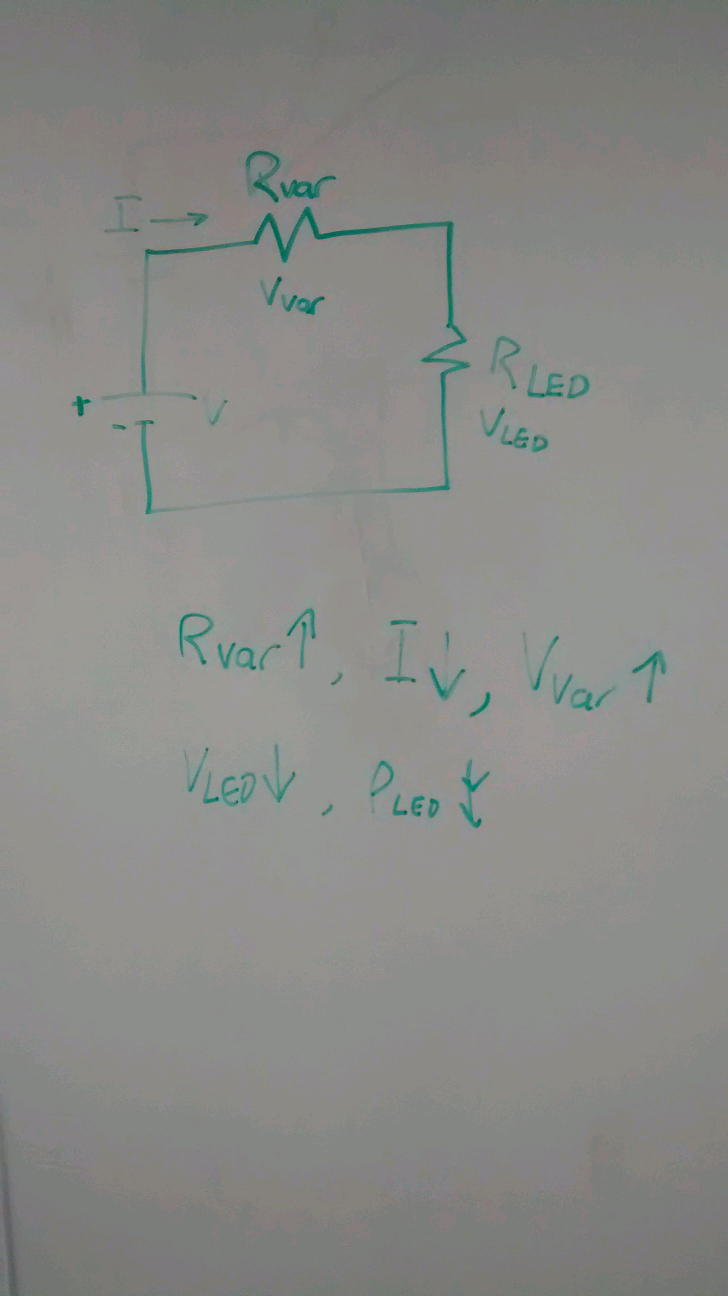 Rvar
I →
Vvar
RLED
+ V
-
VLED
Rvar↑, I↓, Vvar↑
VLED↓, PLED↓↓